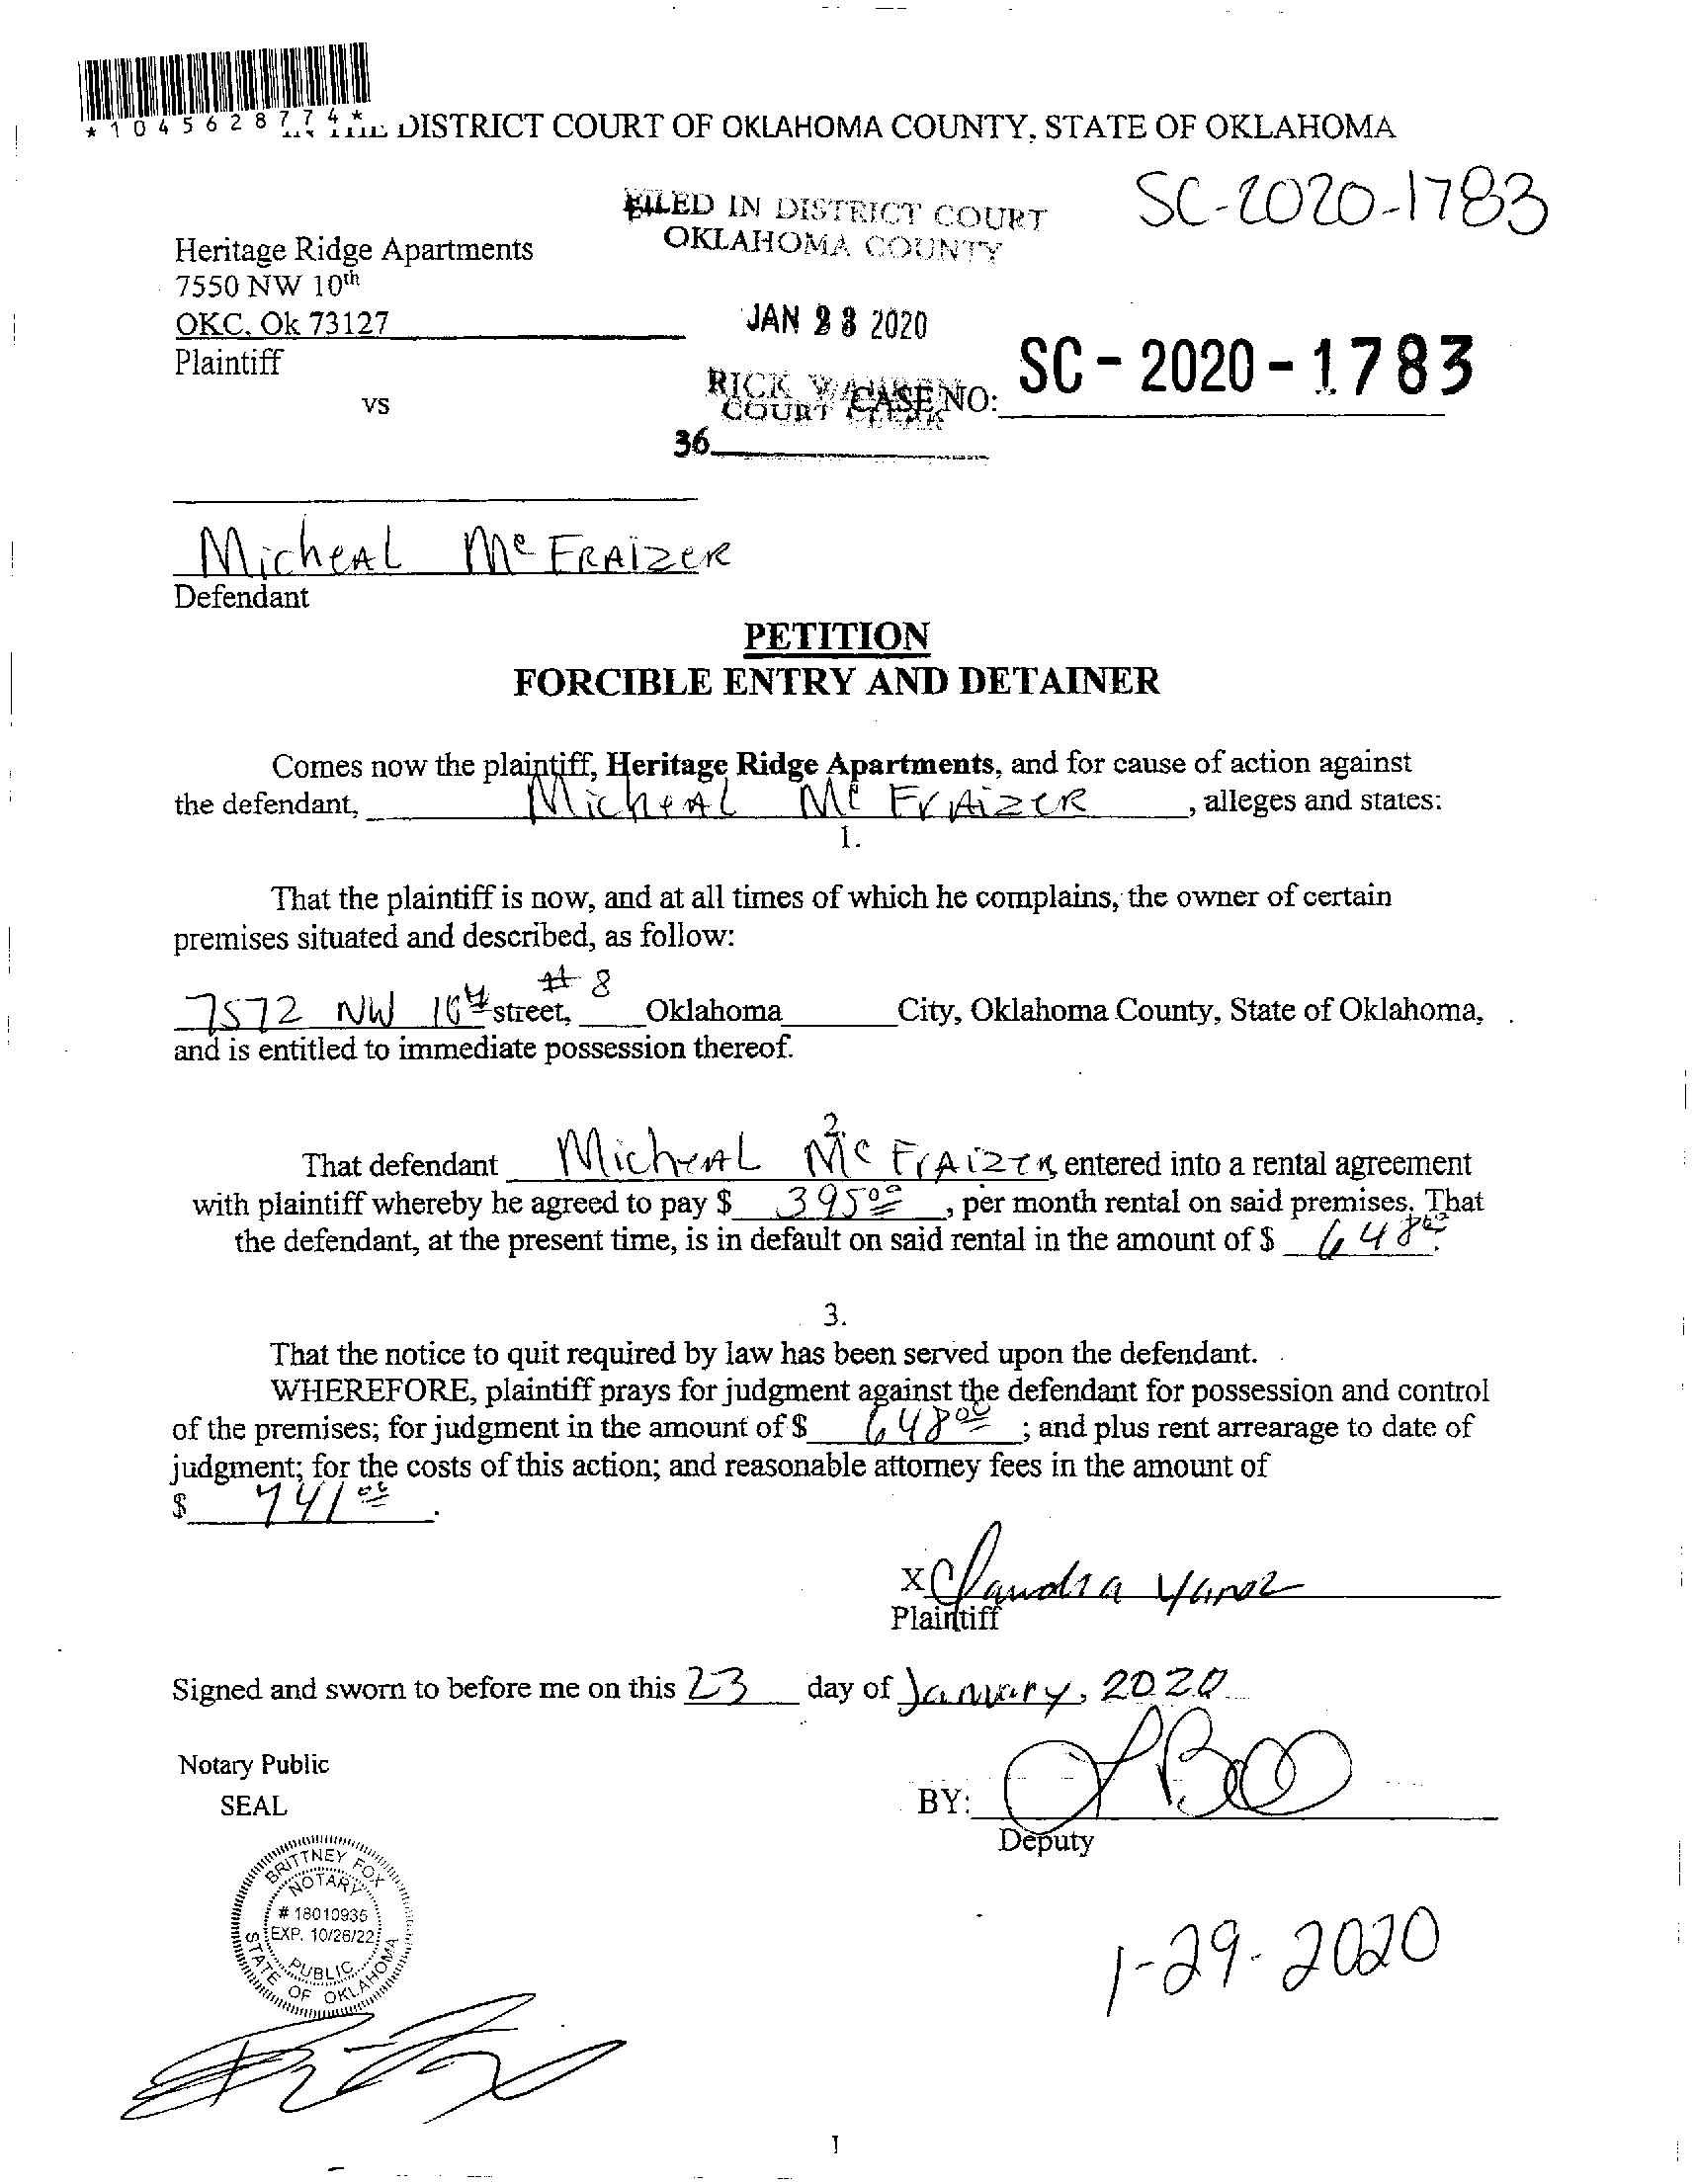 *1045628774*
IN THE DISTRICT COURT OF OKLAHOMA COUNTY, STATE OF OKLAHOMA
SC-2020-1783
FILED IN DISTRICT COURT
OKLAHOMA COUNTY
Heritage Ridge Apartments
7550 NW 10th
OKC, Ok 73127
JAN 2020
Plaintiff
RICK WARREN
COURT CLERK
CASE NO: SC-2020-1783
vs
36
Micheal McFraizer
Defendant
PETITION
FORCIBLE ENTRY AND DETAINER
Comes now the plaintiff, Heritage Ridge Apartments, and for cause of action against
the defendant, Micheal McFraizer, alleges and states:
1.
That the plaintiff is now, and at all times of which he complains, the owner of certain
premises situated and described, as follow:
7572 NW 10th street, #8 Oklahoma City, Oklahoma County, State of Oklahoma,
and is entitled to immediate possession thereof.
2.
That defendant Micheal McFraizer, entered into a rental agreement
with plaintiff whereby he agreed to pay $ 395.00, per month rental on said premises. That
the defendant, at the present time, is in default on said rental in the amount of $ 648.00.
3.
That the notice to quit required by law has been served upon the defendant.
WHEREFORE, plaintiff prays for judgment against the defendant for possession and control
of the premises; for judgment in the amount of $ 648.00; and plus rent arrearage to date of
judgment; for the costs of this action; and reasonable attorney fees in the amount of
$ 741.00.
X Claudia
Plaintiff
Signed and sworn to before me on this 23 day of January, 2020
Notary Public
SEAL
BY:
Deputy
BRITTNEY FOX
NOTARY
# 18010935
EXP. 10/26/22
PUBLIC
STATE OF OKLAHOMA
1-29-2020
1